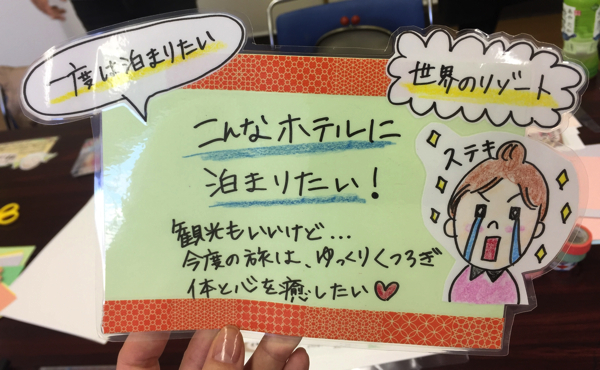 一度は泊まりたい
世界のリゾート
こんなホテルに
泊まりたい!
ステキ
観光もいいけど…
今度の旅は、ゆっくりくつろぎ
体と心を癒したい♥